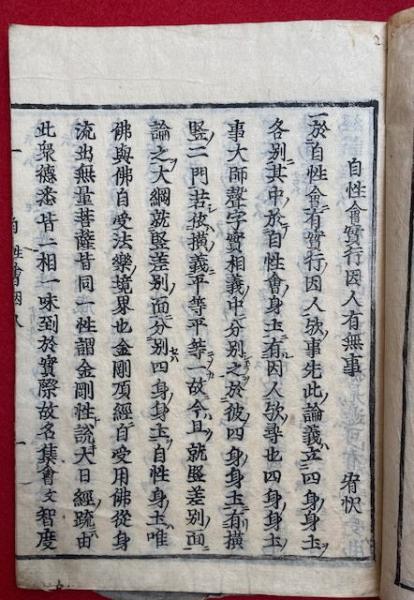 自性會實行因人有無事　宥快
一於自性會有實行因人歟事先此論義立四身身土
各別其中於自性會身土有因人歟尋也四身身土
事大師聲字實相義中分別之於彼四身身土有橫
竪二門若依橫義平等平等一故今且就竪差別面
論之大綱就竪差別面分別四身身土自性身土唯
佛與佛自受法樂境界也金剛頂經自受用佛從身
流出無量菩薩皆同一性謂金剛性說大日經疏由
此衆德悉皆一相一味到於實際故名集會文智度
自性會因人　一